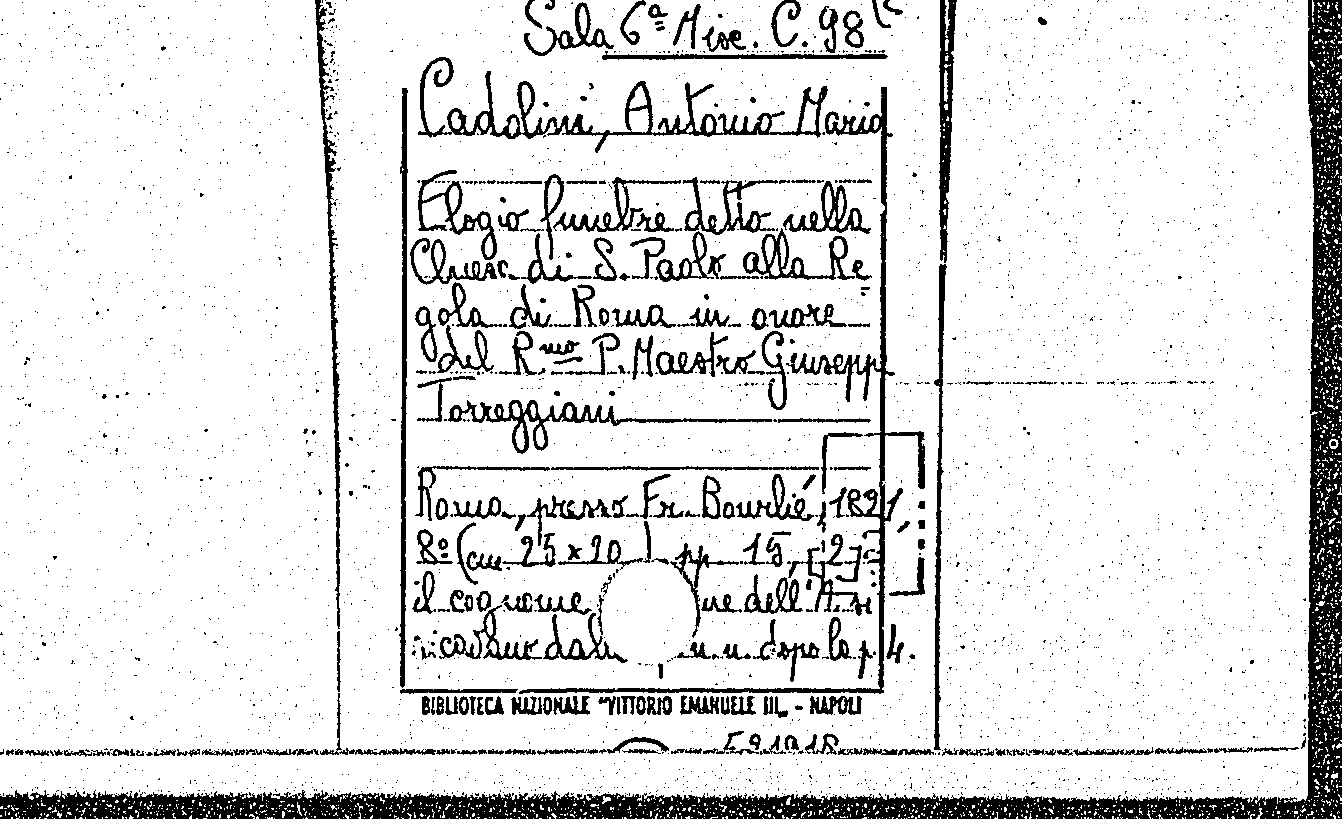 Sala 6ª Misc. C. 98
Cadolini, Antonio Maria
Elogio funebre detto nella
Chiesa di S. Paolo alla Re
gola di Roma in onore
del R.mo P. Maestro Giuseppe
Torreggiani
Roma, presso Fr. Bourlié, 1821
8º (cm. 25 x 20 pp. 15, [2]
il cognome ne dell'A. si
ricavano dal n.n. dopo la p. 4.
BIBLIOTECA NAZIONALE "VITTORIO EMANUELE III„ - NAPOLI